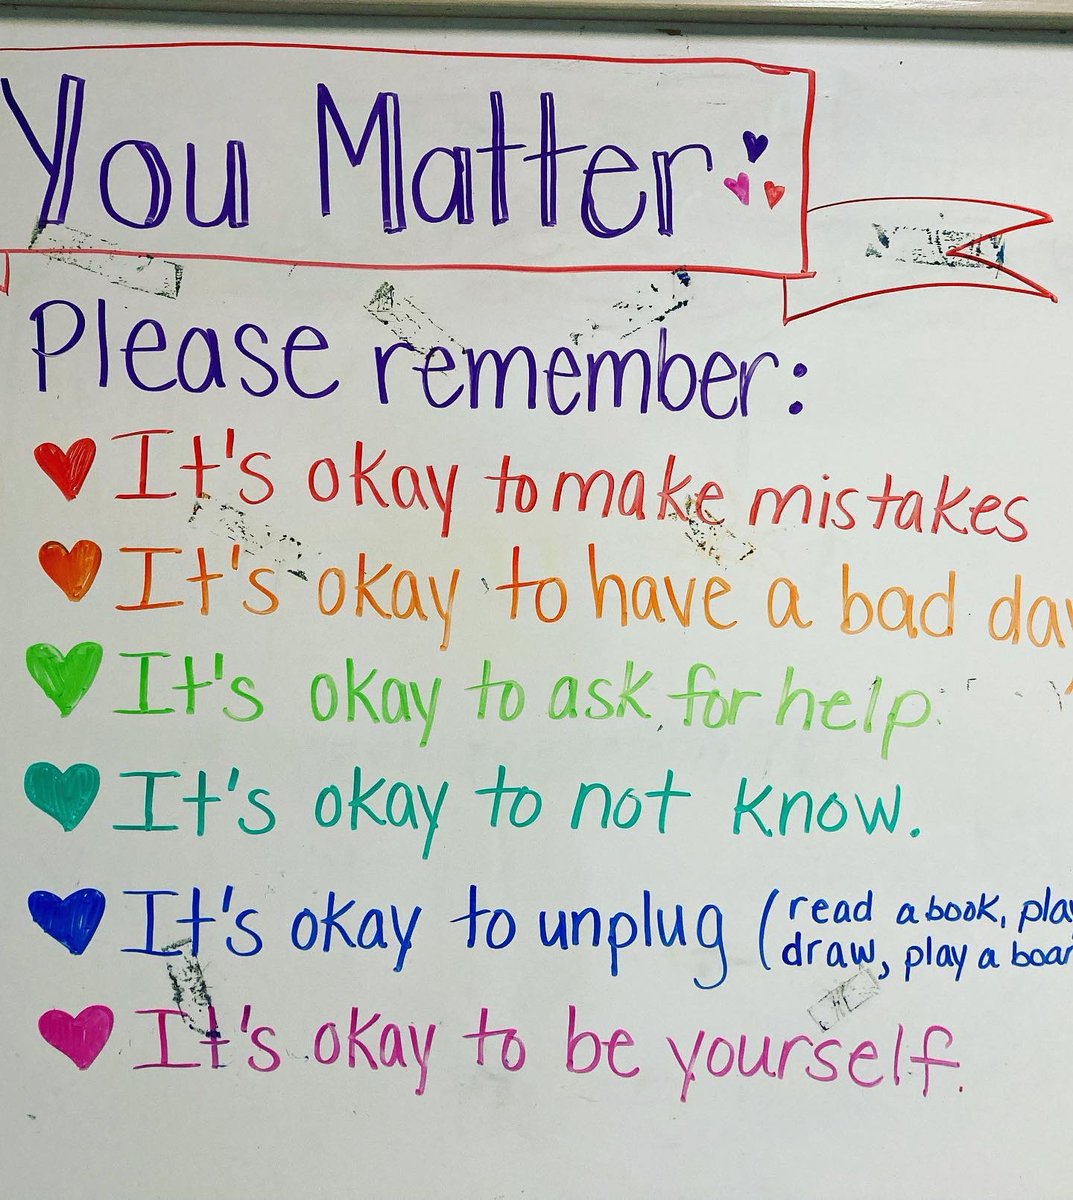 You Matter
Please remember:
It's okay to make mistakes
It's okay to have a bad day
It's okay to ask for help
It's okay to not know.
It's okay to unplug (read a book, play
draw, play a boar
It's okay to be yourself.